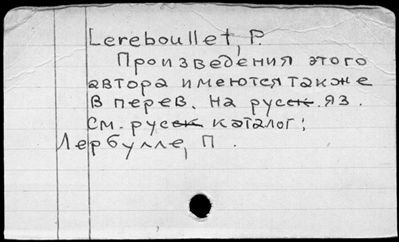 Lereboullet, P.
Произведения этого
автора имеются также
в перев. на русск. яз.
См. русск каталог:
Лербулле, П.